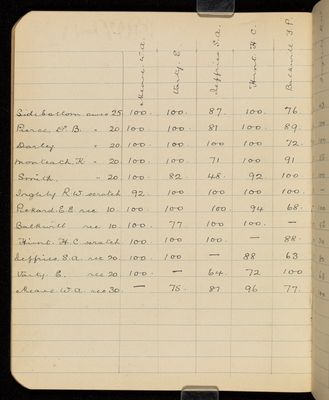 Meare W.A. Varty. E. Jeffries S.A. Hunt H.C. Balkwill F.P.
Sidebottom owes 25 100 100 87 100 76
Pierce P.B. " 20 100 100 81 100 89
Darley " 20 100 100 100 100 72
Monteath. K " 20 100 100 71 100 91
Smith. " 20 100 82 48 92 100
Ingleby R.W. scratch 92 100 100 100 100
Pickard. E.E rec 10 100 100 100 94 68
Balkwill rec 10 100 77 100 100 —
Hunt. H.C. scratch 100 100 100 — 88
Jeffries. S.A. rec 20 100 100 — 88 63
Varty. E. rec 20 100 — 64 72 100
Meare W.A. rec 30 — 75 87 96 77